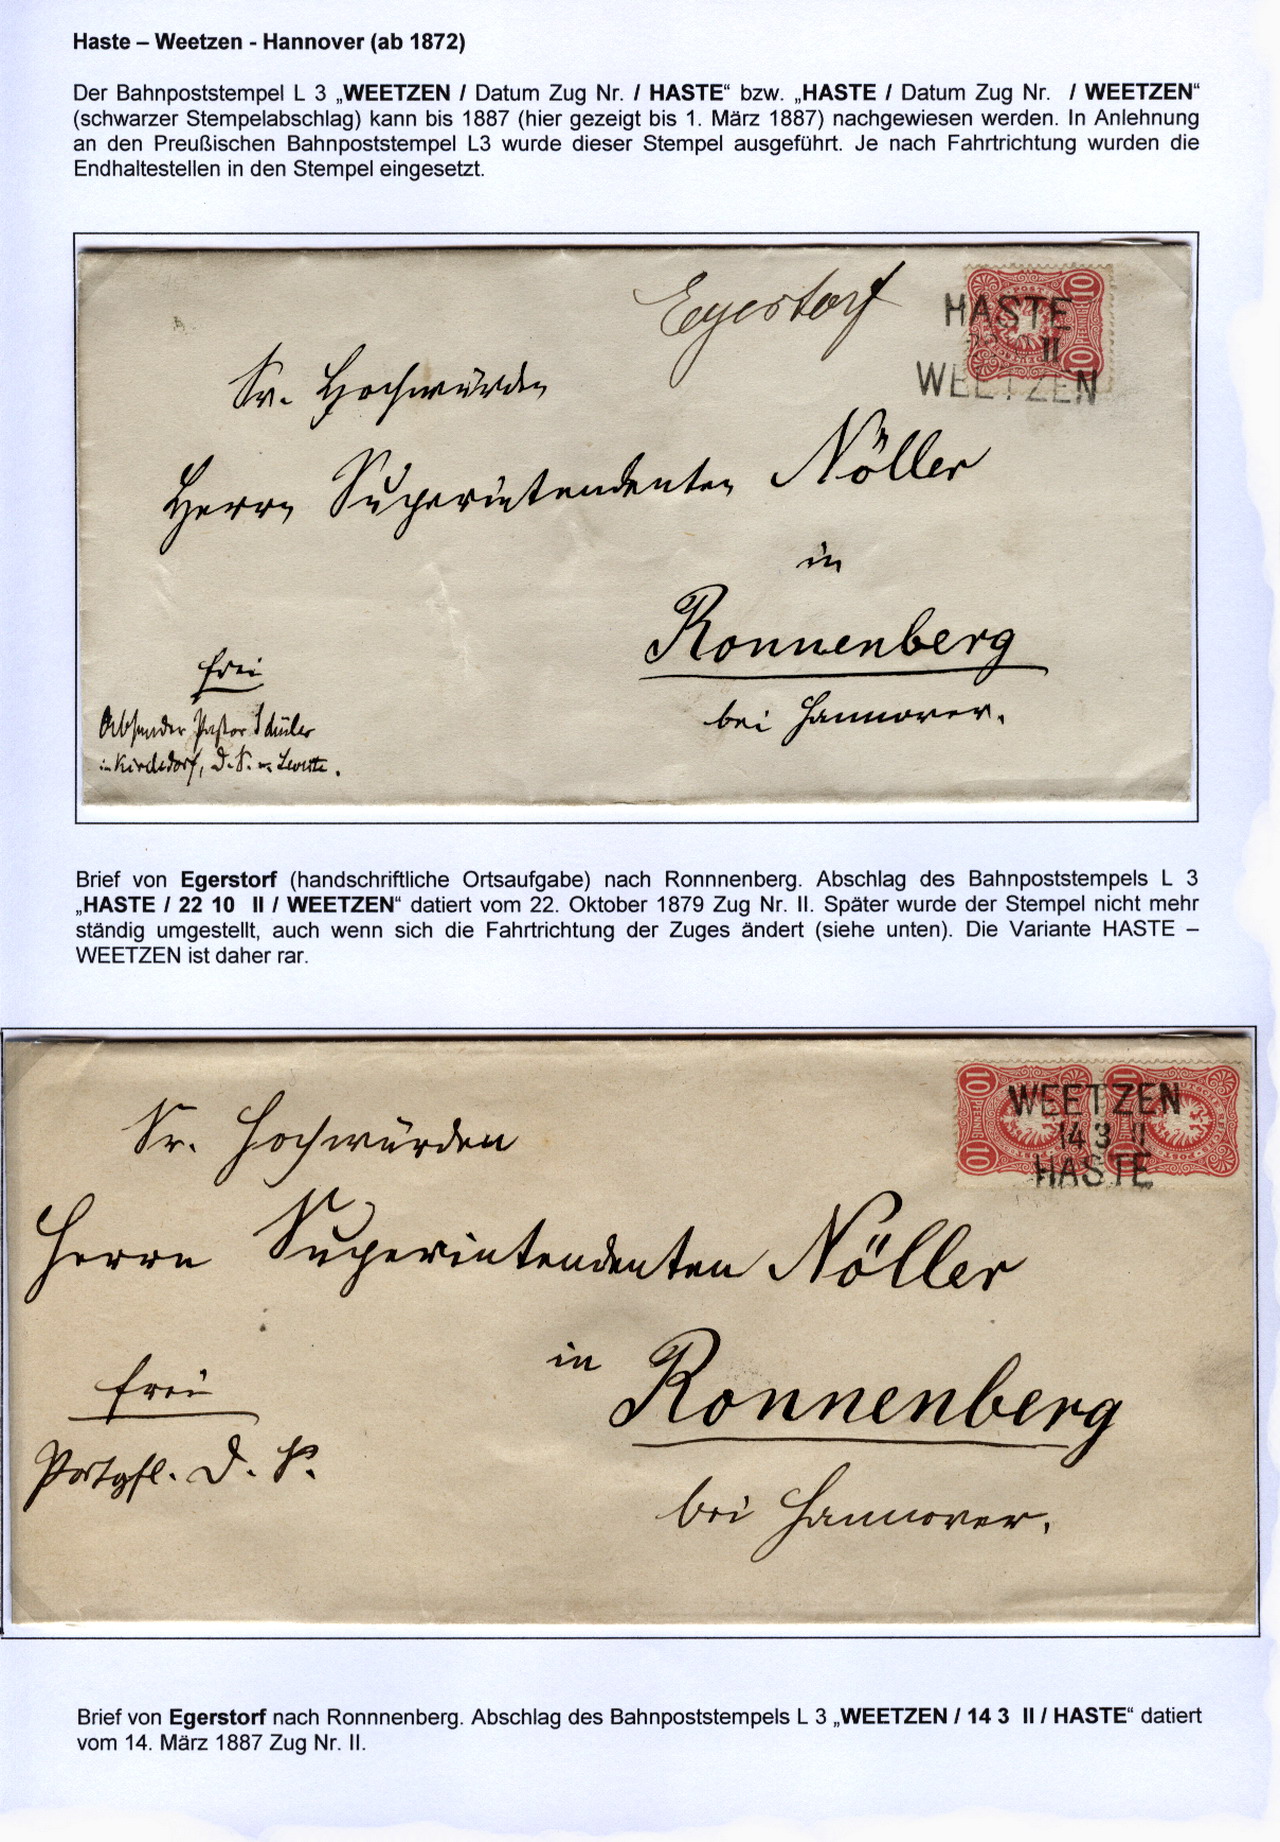 Haste – Weetzen - Hannover (ab 1872)
Der Bahnpoststempel L 3 „WEETZEN / Datum Zug Nr. / HASTE“ bzw. „HASTE / Datum Zug Nr. / WEETZEN“
(schwarzer Stempelabschlag) kann bis 1887 (hier gezeigt bis 1. März 1887) nachgewiesen werden. In Anlehnung
an den Preußischen Bahnpoststempel L3 wurde dieser Stempel ausgeführt. Je nach Fahrtrichtung wurden die
Endhaltestellen in den Stempel eingesetzt.
Egestorf
HASTE
II
WEETZEN
10 PFENNIG 10
Sr. Hochwürden
Herrn Superintendenten Nöller
in
Ronnenberg
bei Hannover.
frei
Absender Pastor
in Kirchdorf, D. S.
Brief von Egerstorf (handschriftliche Ortsaufgabe) nach Ronnnenberg. Abschlag des Bahnpoststempels L 3
„HASTE / 22 10 II / WEETZEN“ datiert vom 22. Oktober 1879 Zug Nr. II. Später wurde der Stempel nicht mehr
ständig umgestellt, auch wenn sich die Fahrtrichtung der Zuges ändert (siehe unten). Die Variante HASTE –
WEETZEN ist daher rar.
WEETZEN
14 3 II
HASTE
10 PFENNIG 10
Sr. Hochwürden
Herrn Superintendenten Nöller
in
Ronnenberg
bei Hannover.
frei
D. S.
Brief von Egerstorf nach Ronnnenberg. Abschlag des Bahnpoststempels L 3 „WEETZEN / 14 3 II / HASTE“ datiert
vom 14. März 1887 Zug Nr. II.